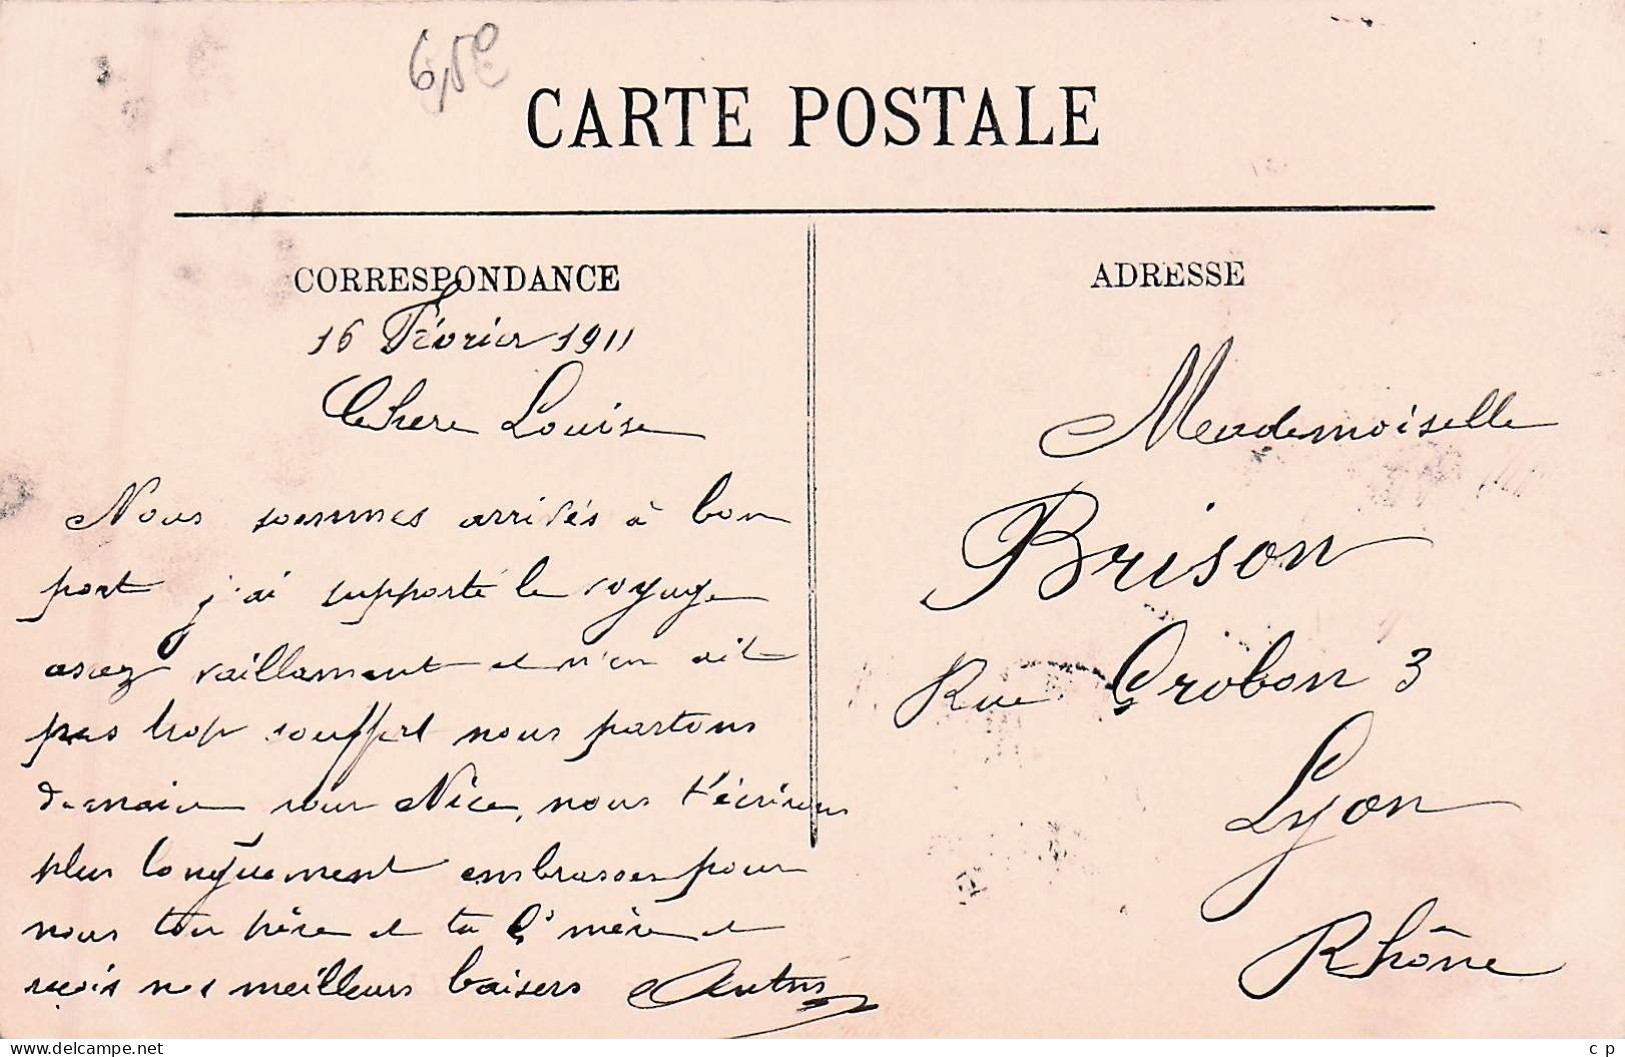 6,50
CARTE POSTALE
CORRESPONDANCE
16 Février 1911
Chere Louise
Nous sommes arrivés à bon
port j'ai supporté le voyage
assez vaillament et n'en ait
pas trop souffert nous partons
demain pour Nice, nous t'écrirons
plus longuement embrasses pour
nous ton père et ta G mère et
reçois nos meilleurs baisers
ADRESSE
Mademoiselle
Brison
Rue Grobon 3
Lyon
Rhône
https://www.delcampe.net
c p